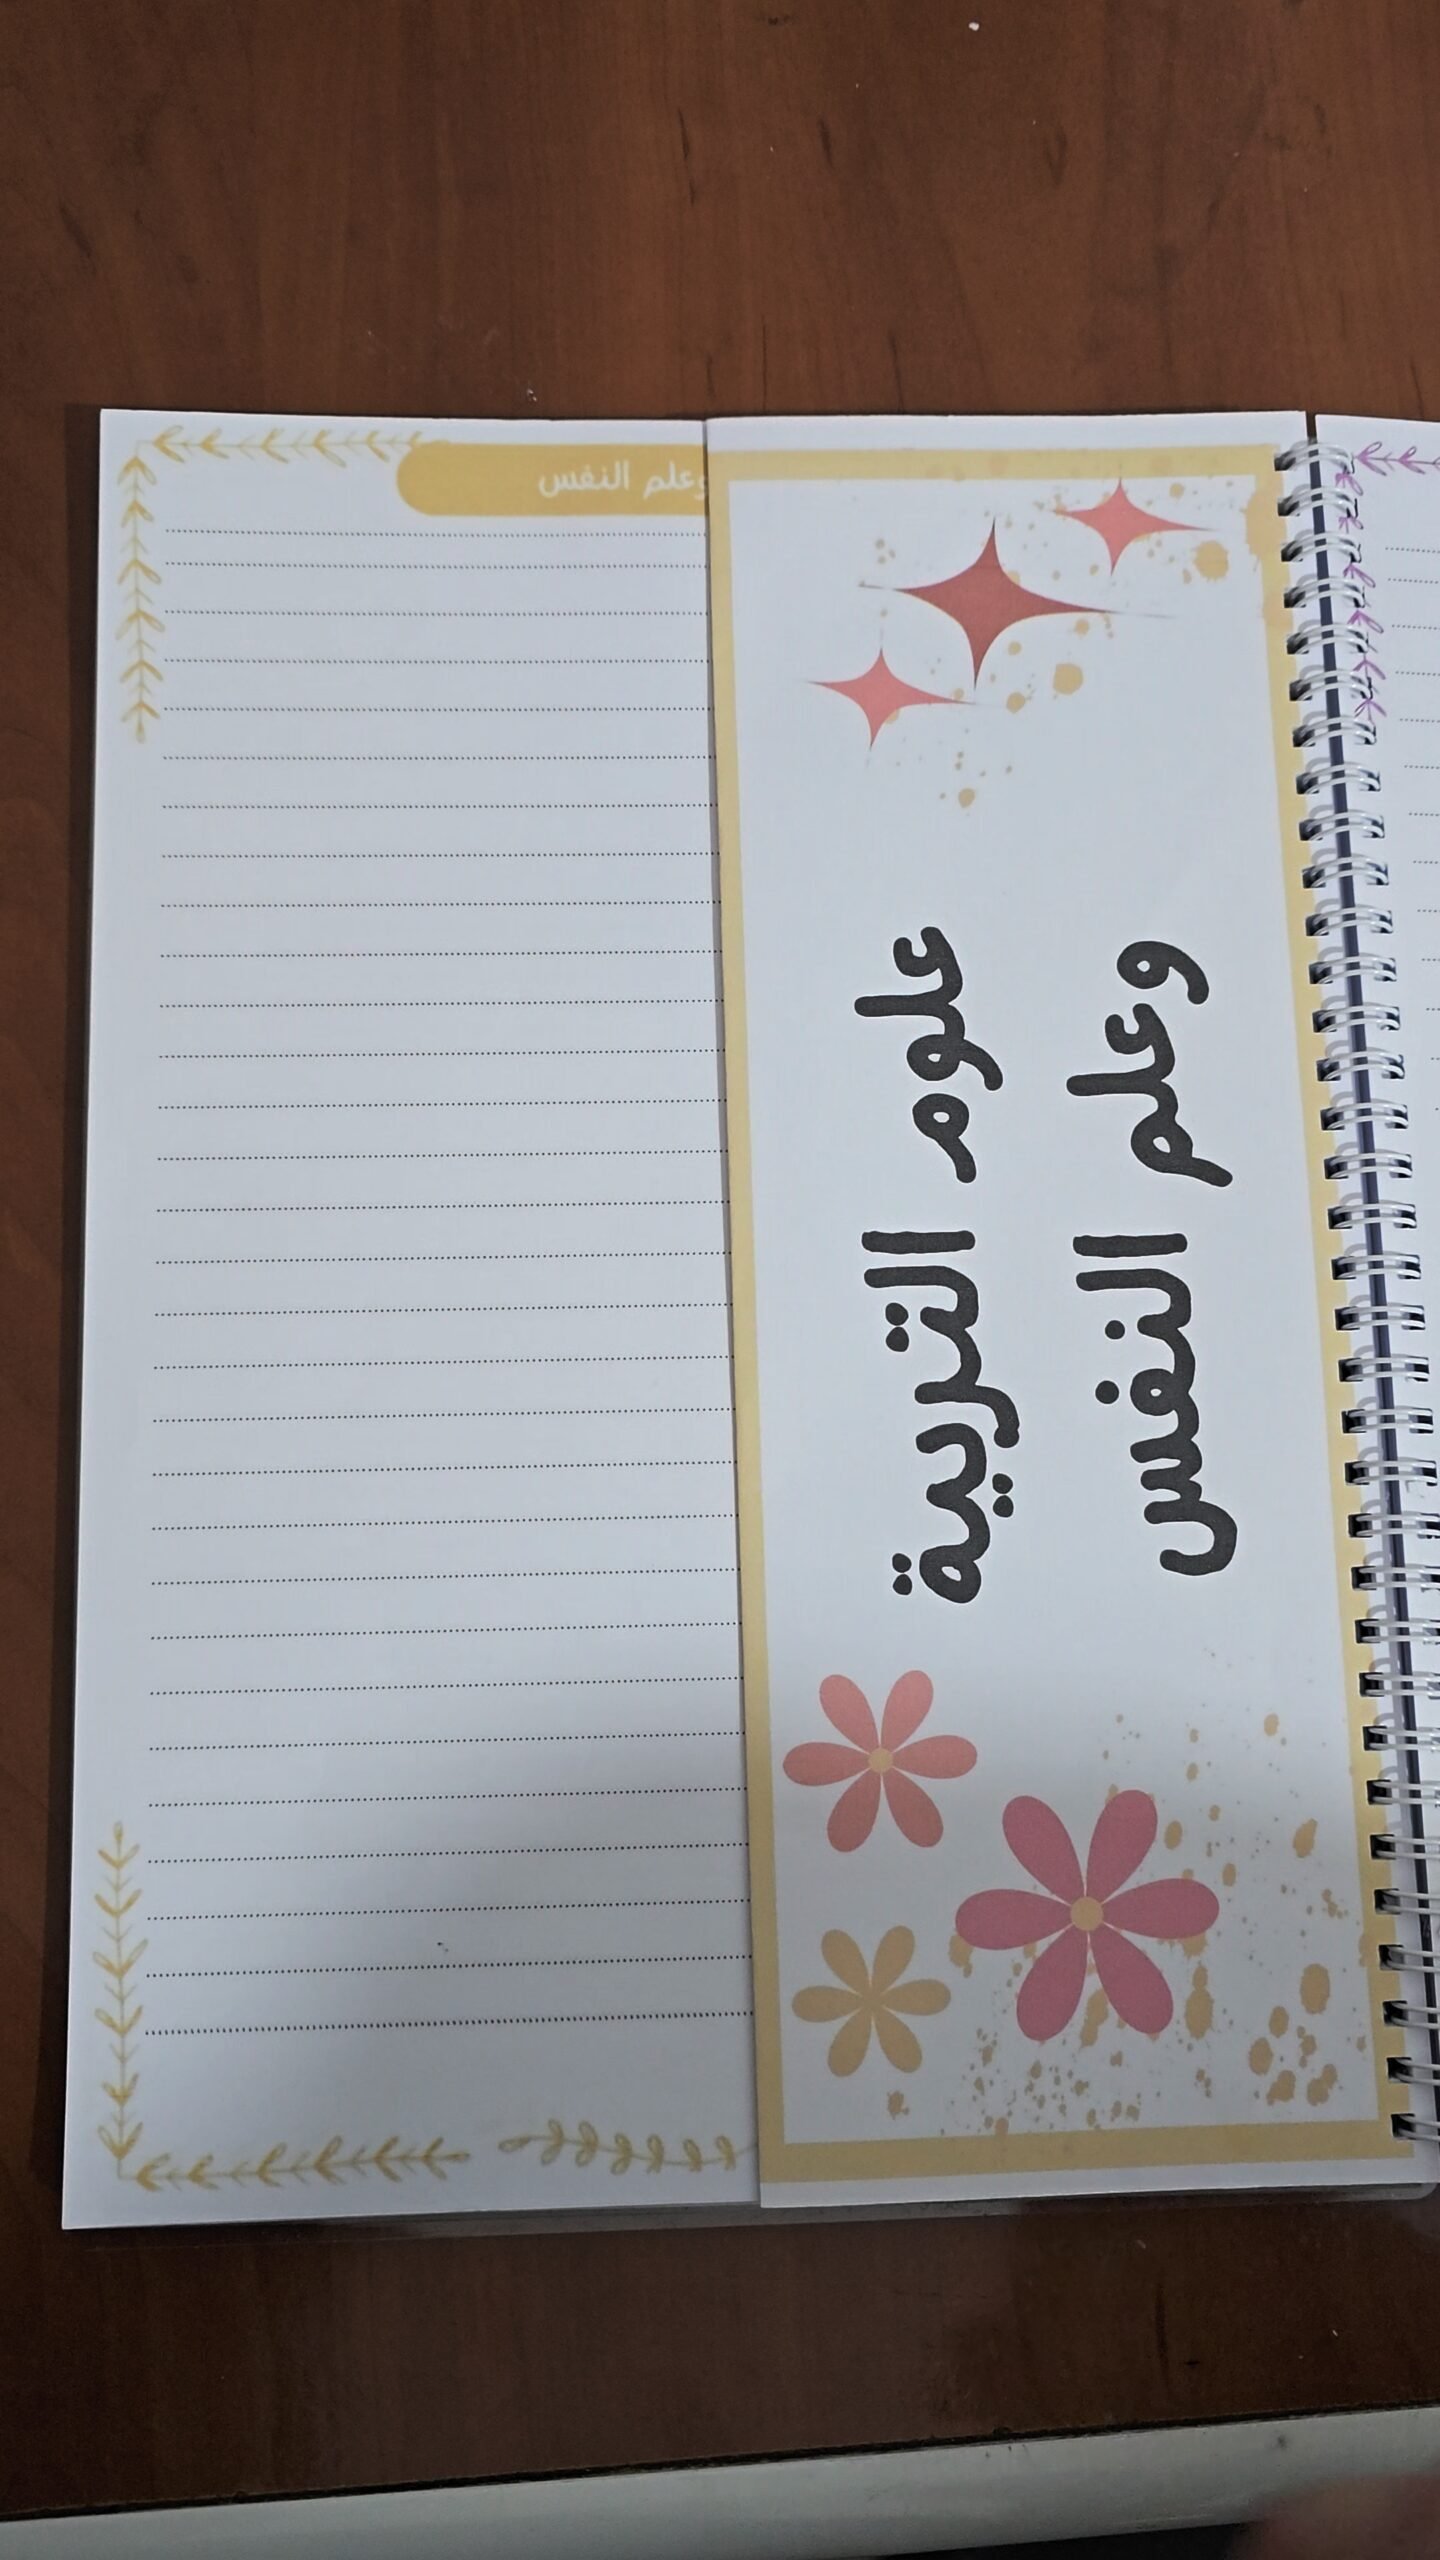 وعلم النفس
علوم التربية
وعلم النفس